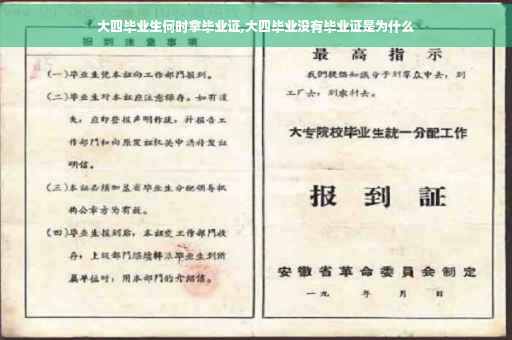 大四毕业生何时拿毕业证,大四毕业没有毕业证是为什么
报到注意事项
(一)毕业生凭本证向工作部门报到。
(二)毕业生对本证应注意保存。如有遗
失,应即登报声明作废,并报告工
作部门和向原发证机关申请补发证
明信。
(三)本证必须加盖省毕业生分配领导机
构公章方为有效。
(四)毕业生报到后,本证交工作部门收
存;上级部门继续转派毕业生到所
属单位时,用本部门的介绍信。
最高指示
我们提倡知识分子到羣众中去,到
工厂去,到农村去。
大专院校毕业生統一分配工作
报到証
安徽省革命委員会制定
一九 年 月 日